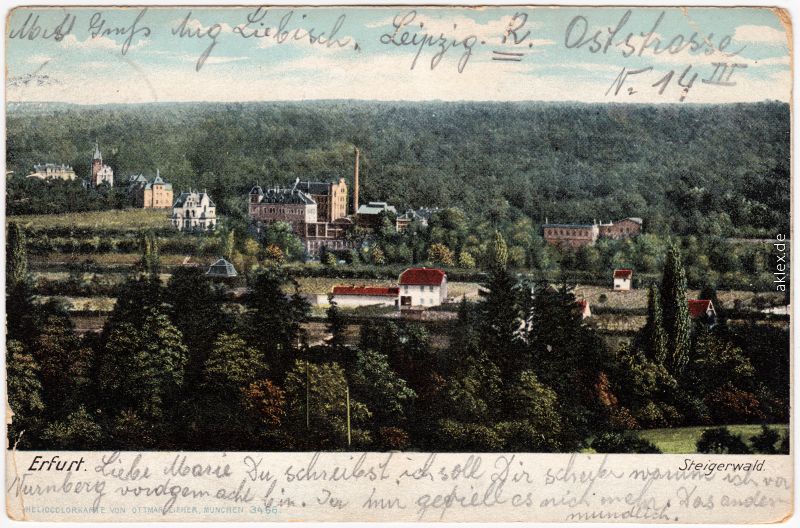 Mit Gruß Aug Liebisch. Leipzig. R. Oststrasse
No 14 III
aklex.de
Erfurt. Steigerwald.
Liebe Marie Du schreibst, ich soll Dir schreiben warum ich vor
Nürnberg vordgemacht bin. Der Nur gefiell es nich mehr. Das andere
mündlich.
HELIOCOLORKARTE VON OTTMAR ZIEHER, MÜNCHEN. 3456.